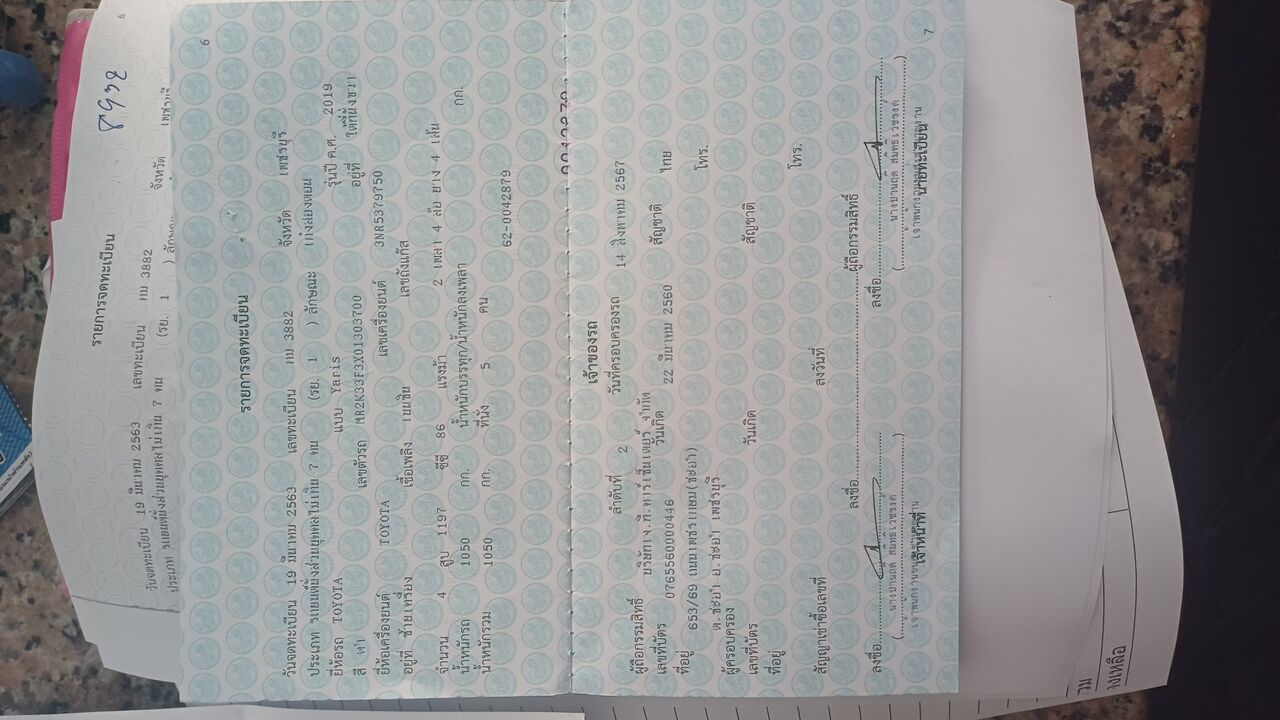 6
รายการจดทะเบียน
วันจดทะเบียน 19 มีนาคม 2563 เลขทะเบียน กม 3882 จังหวัด เพชรบุรี
ประเภท รถยนต์นั่งส่วนบุคคลไม่เกิน 7 คน (รย. 1 ) ลักษณะ เก๋งสองตอน
ยี่ห้อรถ TOYOTA แบบ Yaris รุ่นปี ค.ศ. 2019
สี เทา เลขตัวรถ MR2K33F3X01303700 อยู่ที่ ใต้ที่นั่งขวา
ยี่ห้อเครื่องยนต์ TOYOTA เลขเครื่องยนต์ 3NR5379750
อยู่ที่ ซ้ายเครื่อง เชื้อเพลิง เบนซิน เลขถังแก๊ส
จำนวน 4 สูบ 1197 ซีซี 86 แรงม้า 2 เพลา 4 ล้อ ยาง 4 เส้น
น้ำหนักรถ 1050 กก. น้ำหนักบรรทุก/น้ำหนักลงเพลา กก.
น้ำหนักรวม 1050 กก. ที่นั่ง 5 คน 62-0042879
เจ้าของรถ
ลำดับที่ 2 วันที่ครอบครองรถ 14 สิงหาคม 2567
ผู้ถือกรรมสิทธิ์ บริษัทเจ.ที.คาร์เซ็นเตอร์ จำกัด
เลขที่บัตร 0765560000446 วันเกิด 22 มีนาคม 2560 สัญชาติ ไทย
ที่อยู่ 653/69 ถนนเพชรเกษม(ชะอำ) โทร.
ต.ชะอำ อ.ชะอำ เพชรบุรี
ผู้ครอบครอง
เลขที่บัตร วันเกิด สัญชาติ
ที่อยู่ โทร.
สัญญาเช่าซื้อเลขที่ ลงวันที่
ลงชื่อ ผู้ถือกรรมสิทธิ์
ลงชื่อ ลงชื่อ
เจ้าหน้าที่ นายทะเบียน
7
6
8668
รายการจดทะเบียน
วันจดทะเบียน 19 มีนาคม 2563 เลขทะเบียน กม 3882 จังหวัด
ประเภท รถยนต์นั่งส่วนบุคคลไม่เกิน 7 คน (รย. 1 )